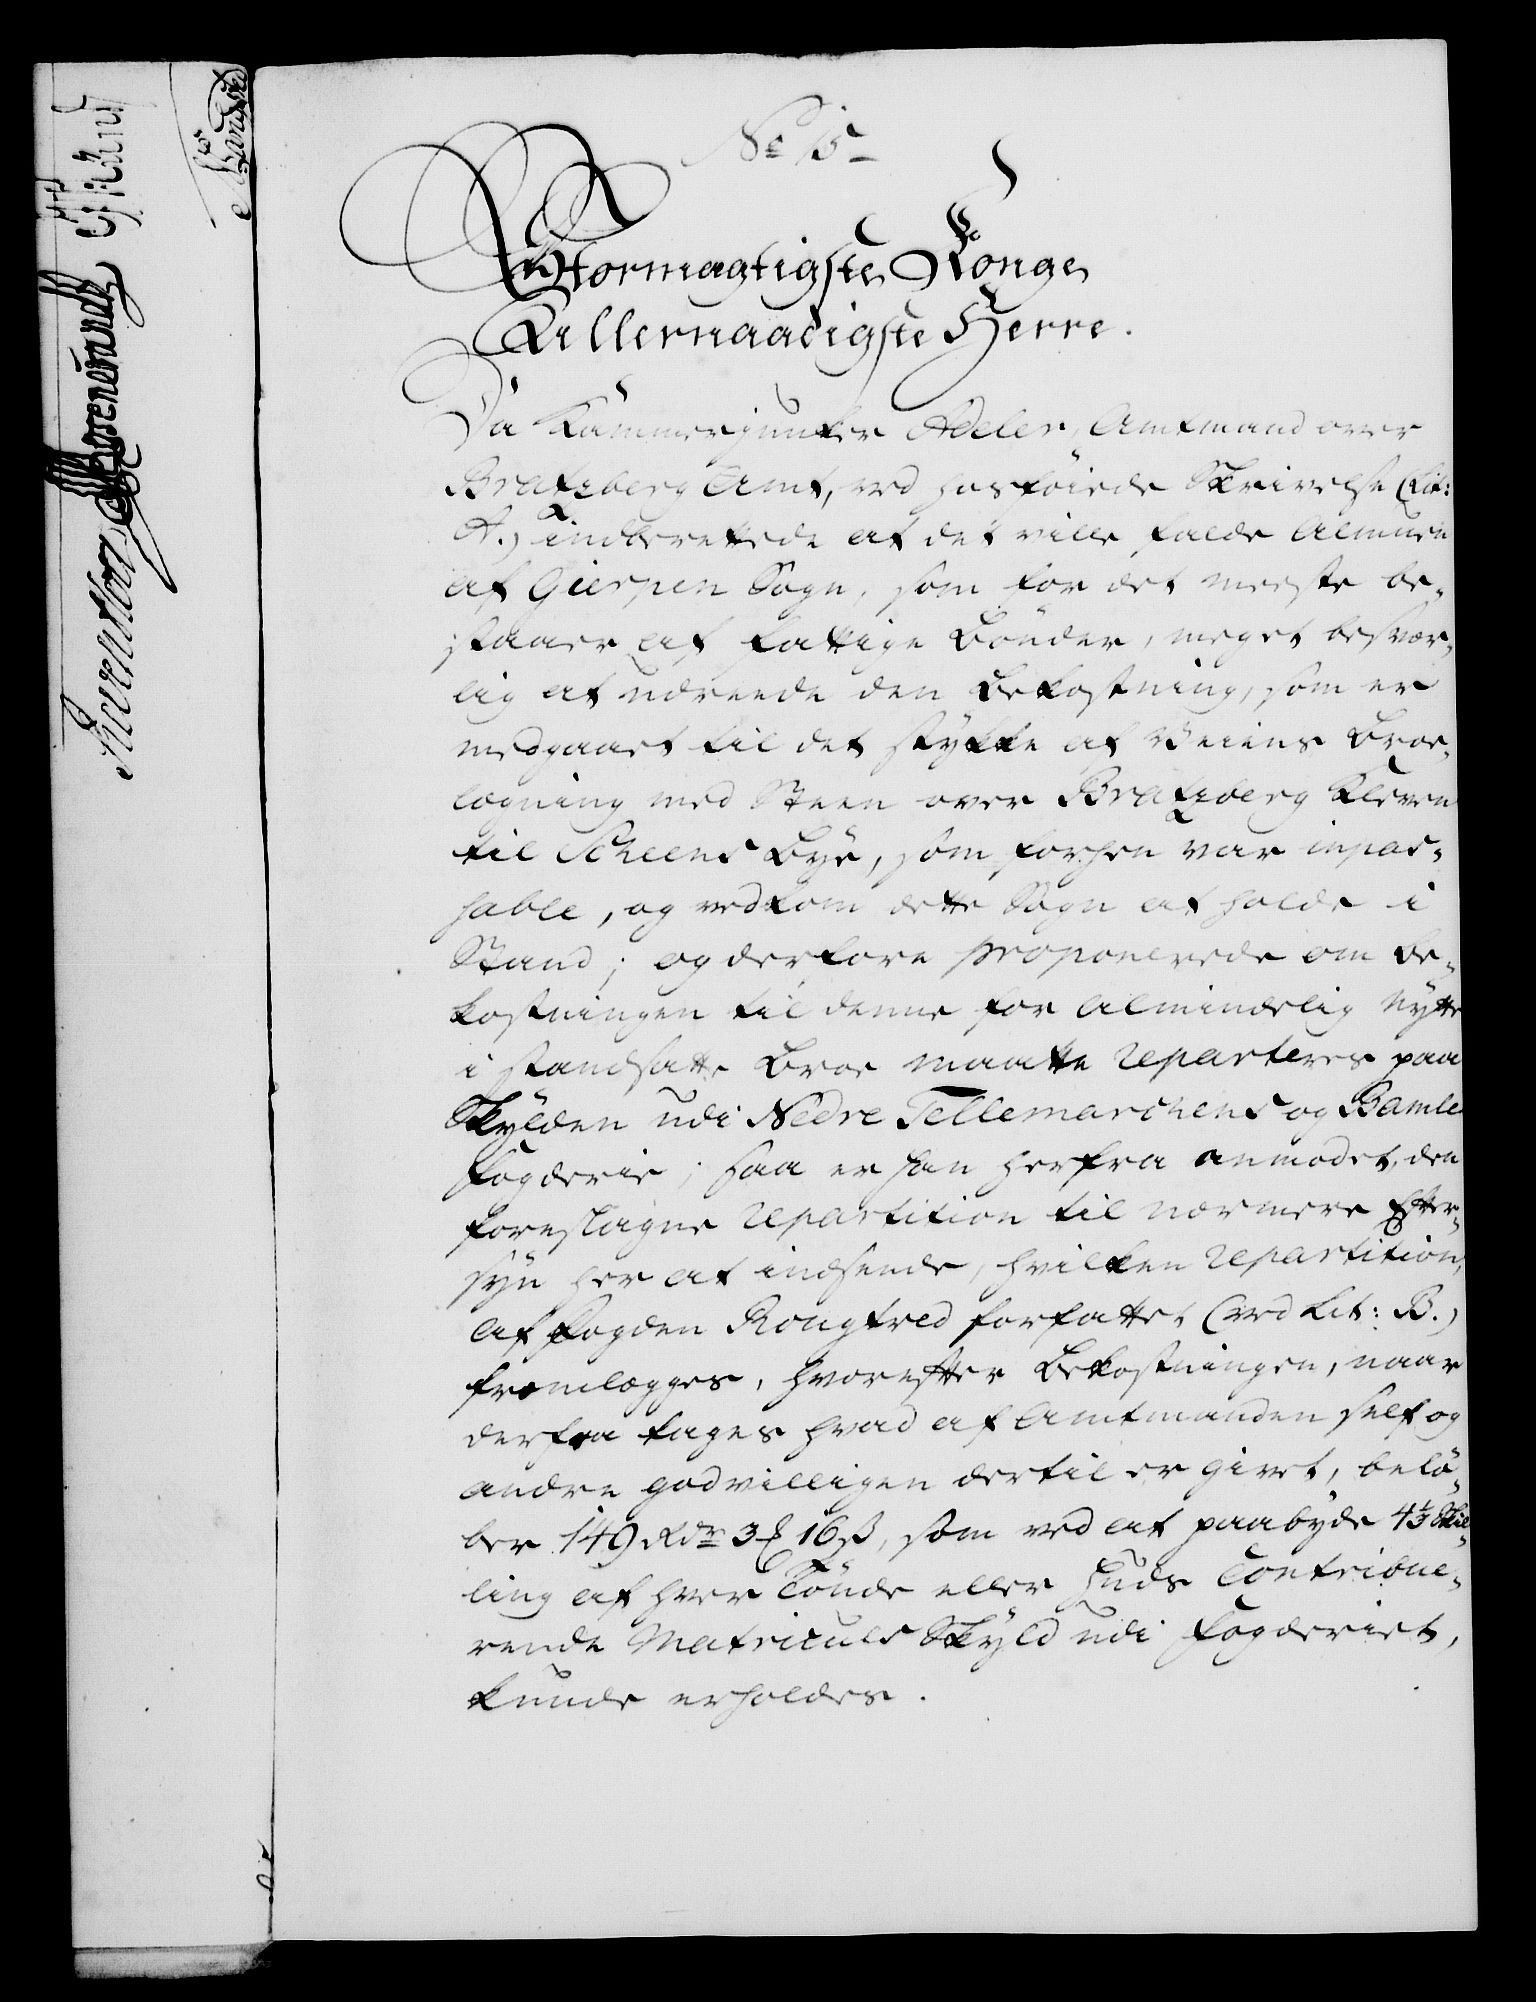 No 15
Stormægtigste Konge
Allernaadigste Herre.
Da Kammerjunker Adeler, Amtmand over
Bratzberg Amt, ved hosföiede Skrivelse (Lit:
A.) indberettede at det ville falde Almuen
af Gierpen Sogn, som for det meeste be-
staaer af fattige Bönder, meget besvær-
lig at udreede den Bekostning, som er
medgaaet til det stykke af Veiens Broe-
lægning med Steen over Bratzberg Kleven
til Scheens Bye, som forhen var inpas-
sable, og vedkom dette Sogn at holde i
Stand; og derfore proponerede om Be-
kostningen til denne for Almindelig Nytte
i standsatte Broe maatte reparteres paa
Skylden udi Nedre Tellemarchens og Bamle
Fogderie; saa er han herfra anmodet, den
foreslagne repartition til nærmere Efter-
syn her at indsende, hvilken repartition,
af Fogden Rougtved forfattet (ved Lit: B.)
fremlægges, hvorefter Bekostningen, naar
derfra tages hvad af Amtmanden self og
andre godvilligen dertil er givet, belö-
ber 149 Rdr 3 ℔ 16 ß, som ved at paabyde 4⅓ Skil-
ling af hver Tönde eller Huds Contribue-
rende Matriculs Skyld udi Fogderiet,
kunde erholdes.